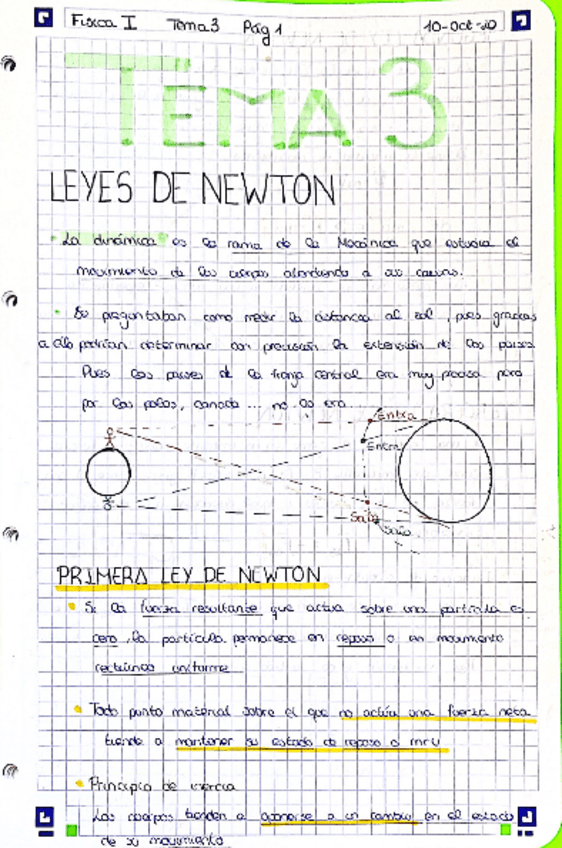 Física I Tema 3 Pág 1 10-Oct-20
TEMA 3
LEYES DE NEWTON
· La dinámica es la rama de la Mecánica que estudia el
movimiento de los cuerpos atendiendo a sus causas.
· Se preguntaban como medir la distancia al sol, pues gracias
a ello podrían determinar con precisión la extensión de los países
Pues los países de la franja central era muy precisa pero
por los polos, canada ... no lo era
Entra
Entra
Sale
Sale
PRIMERA LEY DE NEWTON
· Si la fuerza resultante que actua sobre una partícula es
cero, la partícula permanece en reposo o en movimiento
rectilíneo uniforme
· Todo punto material sobre el que no actúa una fuerza neta
tiende a mantener su estado de reposo o mru
· Principio de inercia
Los cuerpos tienden a oponerse a un cambio en el estado
de su movimiento